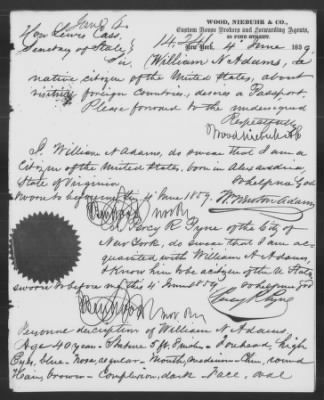 WOOD, NIEBUHR & CO.,
Custom House Brokers and Forwarding Agents,
Hon Lewis Cass.
14,244
New York, 4 June 1859
Secretary of State
Sir
William N Adams, a
native citizen of the United States, about
visiting foreign countries, desires a Passport.
Please forward to the undersigned
Respectfully
Wood Niebuhr & Co
I, William N Adams, do swear that I am a
Citizen of the United States, born in Alexandria,
State of Virginia
So help me God
Sworn to before me this 4 June 1859. W. Newton Adams
Not Pub
Percy R Pyne of the City of
New York, do swear that I am ac-
quainted with William N Adams,
& know him to be a citizen of the U. States
sworn to before me this 4 June 1859 So help me God
Percy R Pyne
Not Pub
Personal description of William N Adams
Age 40 years - Stature 5 ft, inch - Forehead, high
Eyes, blue - Nose, regular - Mouth, medium - Chin, round
Hair, brown - Complexion, dark - Face, oval